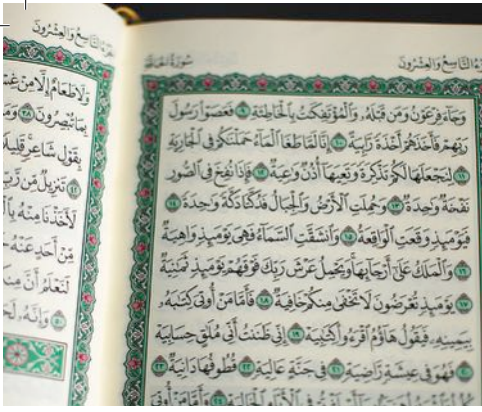 الجزء التاسع والعشرون
سورة الحاقة
وَجَآءَ فِرْعَوْنُ وَمَن قَبْلَهُۥ وَٱلْمُؤْتَفِكَٰتُ بِٱلْخَاطِئَةِ ٩ فَعَصَوْا۟ رَسُولَ
رَبِّهِمْ فَأَخَذَهُمْ أَخْذَةً رَّابِيَةً ١٠ إِنَّا لَمَّا طَغَا ٱلْمَآءُ حَمَلْنَٰكُمْ فِى ٱلْجَارِيَةِ
١١ لِنَجْعَلَهَا لَكُمْ تَذْكِرَةً وَتَعِيَهَآ أُذُنٌ وَٰعِيَةٌ ١٢ فَإِذَا نُفِخَ فِى ٱلصُّورِ
نَفْخَةٌ وَٰحِدَةٌ ١٣ وَحُمِلَتِ ٱلْأَرْضُ وَٱلْجِبَالُ فَدُكَّتَا دَكَّةً وَٰحِدَةً ١٤
فَيَوْمَئِذٍ وَقَعَتِ ٱلْوَاقِعَةُ ١٥ وَٱنشَقَّتِ ٱلسَّمَآءُ فَهِىَ يَوْمَئِذٍ وَاهِيَةٌ
١٦ وَٱلْمَلَكُ عَلَىٰٓ أَرْجَآئِهَا وَيَحْمِلُ عَرْشَ رَبِّكَ فَوْقَهُمْ يَوْمَئِذٍ ثَمَٰنِيَةٌ
١٧ يَوْمَئِذٍ تُعْرَضُونَ لَا تَخْفَىٰ مِنكُمْ خَافِيَةٌ ١٨ فَأَمَّا مَنْ أُوتِىَ كِتَٰبَهُۥ
بِيَمِينِهِۦ فَيَقُولُ هَآؤُمُ ٱقْرَءُوا۟ كِتَٰبِيَهْ ١٩ إِنِّى ظَنَنتُ أَنِّى مُلَٰقٍ حِسَابِيَهْ
٢٠ فَهُوَ فِى عِيشَةٍ رَّاضِيَةٍ ٢١ فِى جَنَّةٍ عَالِيَةٍ ٢٢ قُطُوفُهَا دَانِيَةٌ ٢٣
الجزء التاسع والعشرون
وَلَا طَعَامٌ إِلَّا مِنْ
بِمَا تُبْصِرُونَ ٣٨
بِقَوْلِ شَاعِرٍ قَلِيلًا
تَنزِيلٌ مِّن رَّبِّ
لَأَخَذْنَا مِنْهُ
مِّنْ أَحَدٍ عَنْهُ
لَنَعْلَمُ أَنَّ
٥٠ وَإِنَّهُۥ